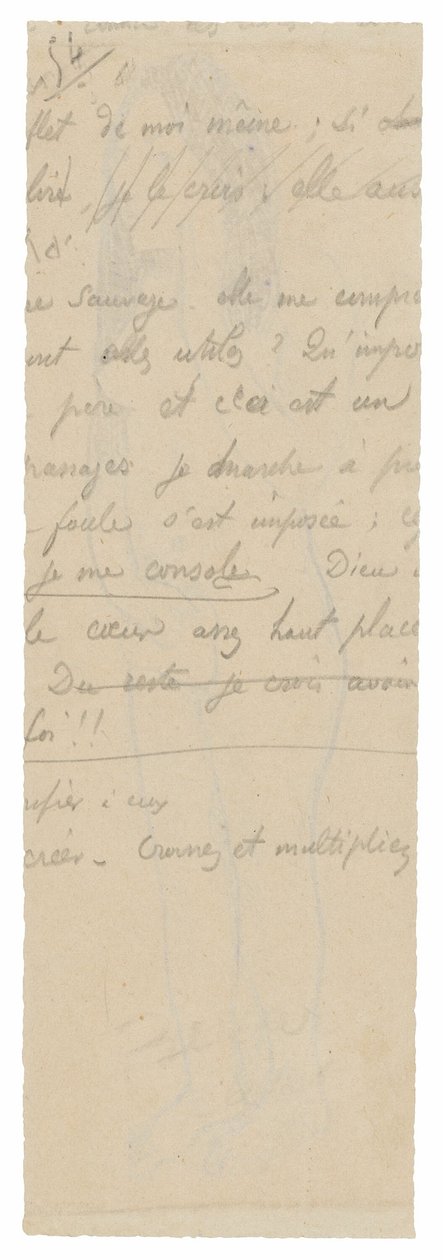 54
flet de moi même ; si
je le crois ; elle aus
re sauvage. elle me compre
ont elles utiles ? Qu'impo
père et c'est un
passages je marche à pre
foule s'est imposée ;
je me console Dieu
le cœur assez haut place
Du reste je crois avoir
loi !!
rifier à eux
créer - Croissez et multipliez